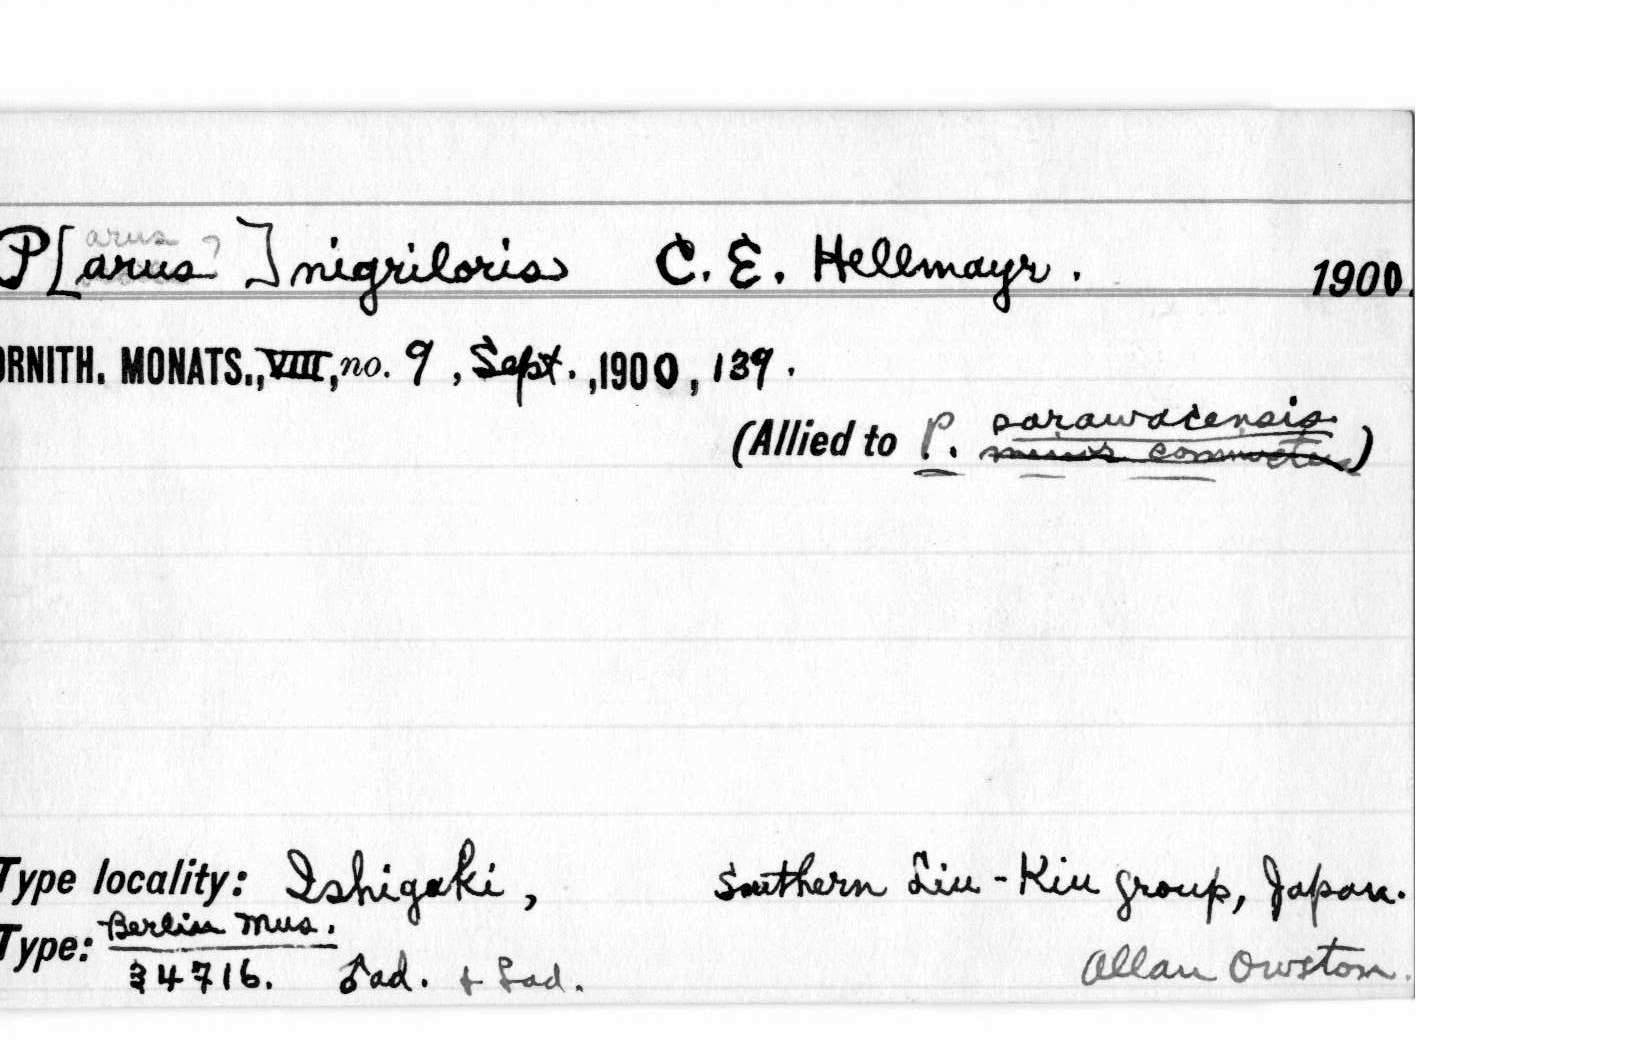 arus ?
P[arus] nigriloris C. E. Hellmayr. 1900.
ORNITH. MONATS., VIII, no. 9, Sept., 1900, 139.
(Allied to P. sarawacensis)
minor commixtus
Type locality: Ishigaki, Southern Liu-Kiu group, Japan.
Type: Berlin Mus.
34716. ♂ad. + ♀ad. Allan Owston.